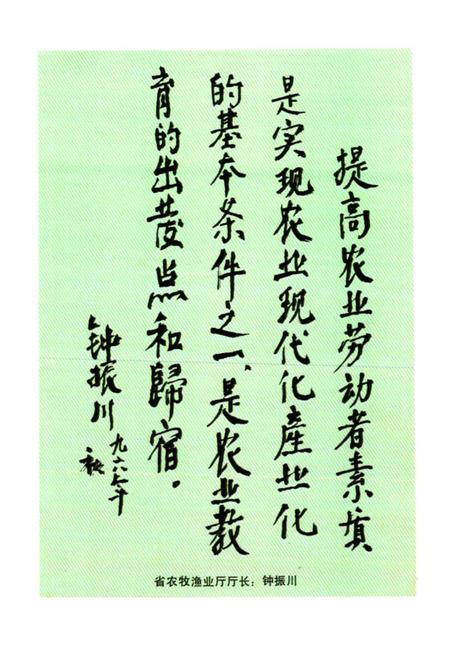 提高农业劳动者素质
是实现农业现代化產业化
的基本条件之一、是农业教
育的出发点和歸宿。
钟振川
九六年
秋
省农牧渔业厅厅长：钟振川